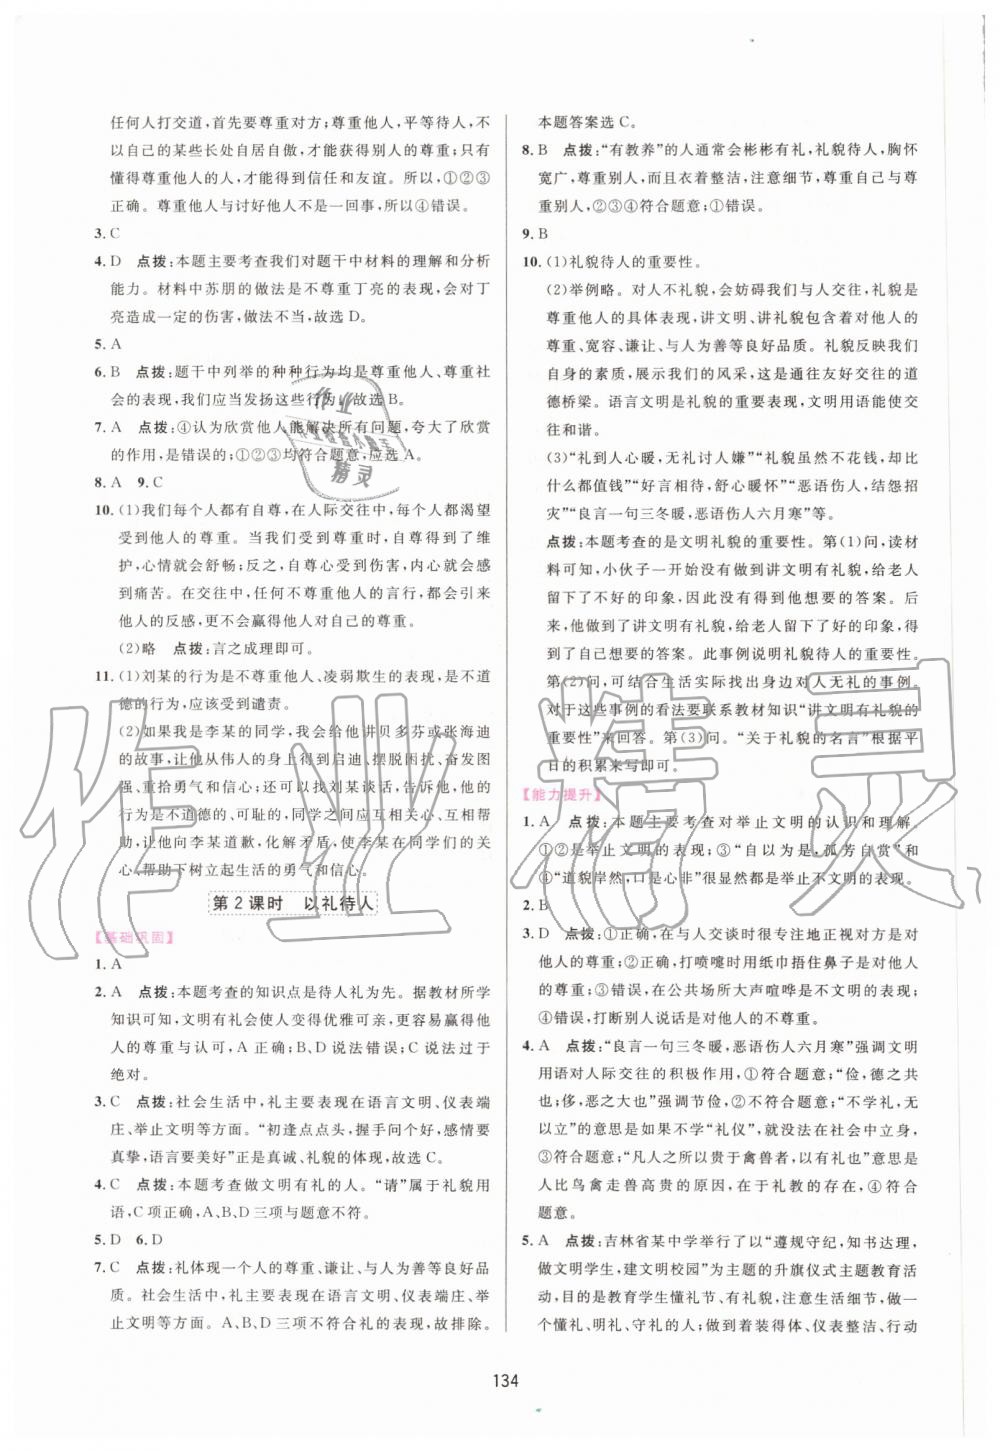 任何人打交道,首先要尊重对方;尊重他人,平等待人,不
以自己的某些长处自居自傲,才能获得别人的尊重;只有
懂得尊重他人的人,才能得到信任和友谊。所以,①②③
正确。尊重他人与讨好他人不是一回事,所以④错误。
3. C
4. D 点拨:本题主要考查我们对题干中材料的理解和分析
能力。材料中苏朋的做法是不尊重丁亮的表现,会对丁
亮造成一定的伤害,做法不当,故选 D。
5. A
6. B 点拨:题干中列举的种种行为均是尊重他人、尊重社
会的表现,我们应当发扬这些行为,故选 B。
7. A 点拨:④认为欣赏他人能解决所有问题,夸大了欣赏
的作用,是错误的;①②③均符合题意,应选 A。
8. A 9. C
10. (1)我们每个人都有自尊,在人际交往中,每个人都渴望
受到他人的尊重。当我们受到尊重时,自尊得到了维
护,心情就会舒畅;反之,自尊心受到伤害,我们就会感
到痛苦。在交往中,任何不尊重他人的言行,都会引来
他人的反感,更不会赢得他人对自己的尊重。
(2)略 点拨:言之成理即可。
11. (1)刘某的行为是不尊重他人、凌弱欺生的表现,是不道
德的行为,应该受到谴责。
(2)如果我是李某的同学,我会给他讲贝多芬或张海迪
的故事,让他从伟人的身上得到启迪,摆脱困扰,奋发图
强,重拾勇气和信心;还可以找刘某谈话,告诉他,他的
行为是不道德的、可耻的,同学之间应互相关心、互相帮
助,让他向李某道歉,化解矛盾,使李某在同学们的关
心、帮助下树立起生活的勇气和信心。
第 2 课时 以礼待人
【基础巩固】
1. A
2. A 点拨:本题考查的知识点是待人礼为先。据教材所学
知识可知,文明有礼会使人变得优雅可亲,更容易赢得他
人的尊重与认可,A 正确;B、D 说法错误;C 说法过于
绝对。
3. C 点拨:社会生活中,礼主要表现在语言文明、仪表端
庄、举止文明等方面。“初逢点点头,握手问个好,感情要
真挚,语言要美好”正是真诚、礼貌的体现,故选 C。
4. C 点拨:本题考查做文明有礼的人。“请”属于礼貌用
语,C 项正确,A、B、D 三项与题意不符。
5. D 6. D
7. C 点拨:礼体现一个人的尊重、谦让、与人为善等良好品
质。社会生活中,礼主要表现在语言文明、仪表端庄、举
止文明等方面。A、B、D 三项不符合礼的表现,故排除。
本题答案选 C。
8. B 点拨:“有教养”的人通常会彬彬有礼,礼貌待人,胸怀
宽广,尊重别人,而且衣着整洁,注意细节,尊重自己与尊
重别人,②③④符合题意;①错误。
9. B
10. (1)礼貌待人的重要性。
(2)举例略。对人不礼貌,会妨碍我们与人交往,礼貌是
尊重他人的具体表现,讲文明、讲礼貌包含着对他人的
尊重、宽容、谦让、与人为善等良好品质。礼貌反映我们
自身的素质,展示我们的风采,这是通往友好交往的道
德桥梁。语言文明是礼貌的重要表现,文明用语能使交
往和谐。
(3)“礼到人心暖,无礼讨人嫌”“礼貌虽然不花钱,却比
什么都值钱”“好言相待,舒心暖怀”“恶语伤人,结怨招
灾”“良言一句三冬暖,恶语伤人六月寒”等。
点拨:本题考查的是文明礼貌的重要性。第(1)问,读材
料可知,小伙子一开始没有做到讲文明、有礼貌,给老人
留下了不好的印象,因此没有得到他想要的答案。后
来,他做到了讲文明有礼貌,给老人留下了好的印象,得
到了想要的答案。此事例说明礼貌待人的重要性。
第(2)问,可结合生活实际找出身边对人无礼的事例。
对于这些事例的看法要联系教材知识“讲文明有礼貌的
重要性”来回答。第(3)问。“关于礼貌的名言”根据平
日的积累来写即可。
【能力提升】
1. A 点拨:本题主要考查对举止文明的认识和理解。
①②是举止文明的表现;③“自以为是,孤芳自赏”和
④“道貌岸然,口是心非”很显然不是举止文明的表现。
2. B
3. D 点拨:①正确,在与人交谈时很专注地正视对方是对
他人的尊重;②正确,打喷嚏时用纸巾捂住鼻子是对他人
的尊重;③错误,在公共场所大声喧哗是不文明的表现;
④错误,打断别人说话是对他人的不尊重。
4. A 点拨:“良言一句三冬暖,恶语伤人六月寒”强调文明
用语对人际交往的积极作用,①符合题意;“俭,德之共
也;侈,恶之大也”强调节俭,②不符合题意;“不学礼,无
以立”的意思是如果不学“礼仪”,就无法在社会中立身,
③符合题意;“凡人之所以贵于禽兽者,以有礼也”的意思
是人比鸟禽走兽高贵的原因,在于礼教的存在,④符合
题意。
5. A 点拨:吉林省某中学举行了以“遵规守纪,知书达理,
做文明学生,建文明校园”为主题的升旗仪式主题教育活
动,目的是教育学生懂礼节、有礼貌,注意生活细节,做一
个懂礼、明礼、守礼的人;做到着装得体、仪表整洁、行动
134
作业精灵
作业
作业检查小助手
精灵